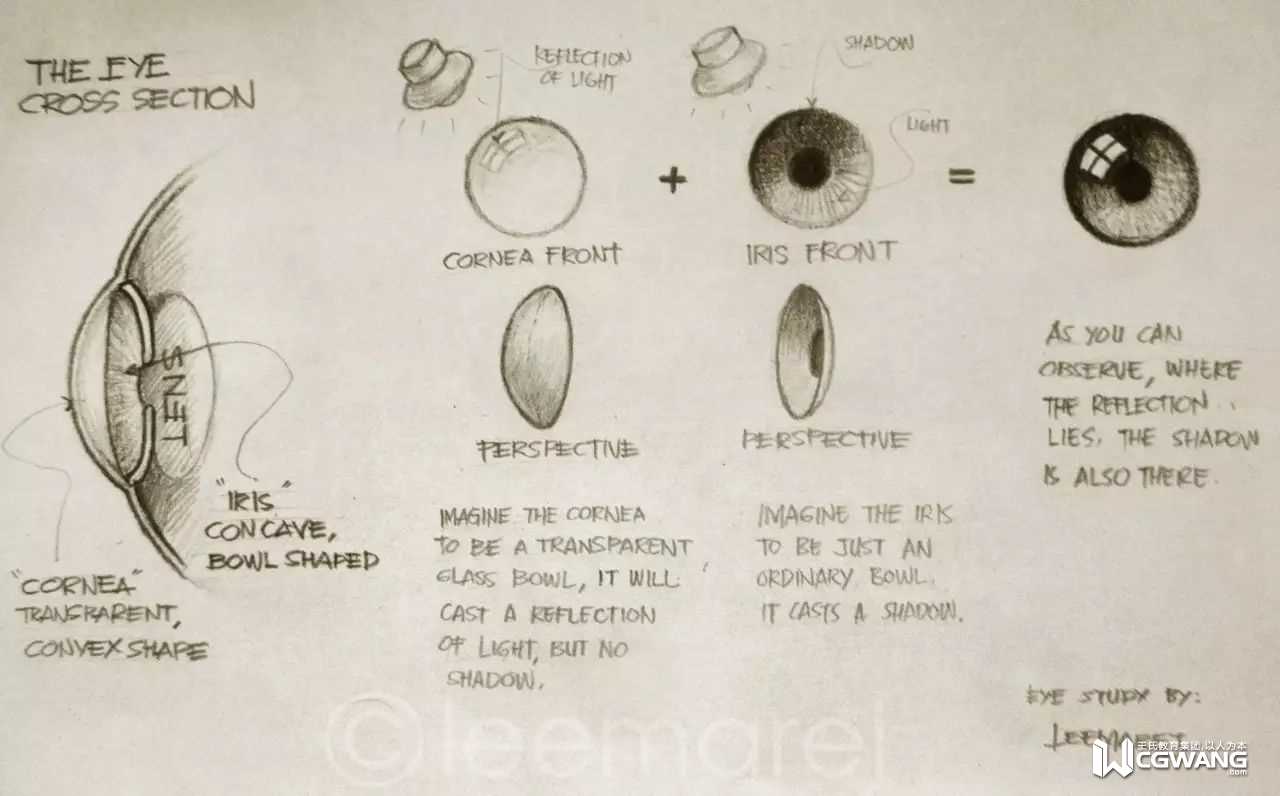 THE EYE
CROSS SECTION
REFLECTION
OF LIGHT
SHADOW
LIGHT
+
=
CORNEA FRONT
IRIS FRONT
LENS
PERSPECTIVE
PERSPECTIVE
"IRIS"
CONCAVE,
BOWL SHAPED
"CORNEA"
TRANSPARENT,
CONVEX SHAPE
IMAGINE THE CORNEA
TO BE A TRANSPARENT
GLASS BOWL, IT WILL
CAST A REFLECTION
OF LIGHT, BUT NO
SHADOW.
IMAGINE THE IRIS
TO BE JUST AN
ORDINARY BOWL.
IT CASTS A SHADOW.
AS YOU CAN
OBSERVE, WHERE
THE REFLECTION..
LIES. THE SHADOW
IS ALSO THERE.
EYE STUDY BY:
LEEMAREJ
©leemarej
王氏教育集团,以人为本
CGWANG
.com